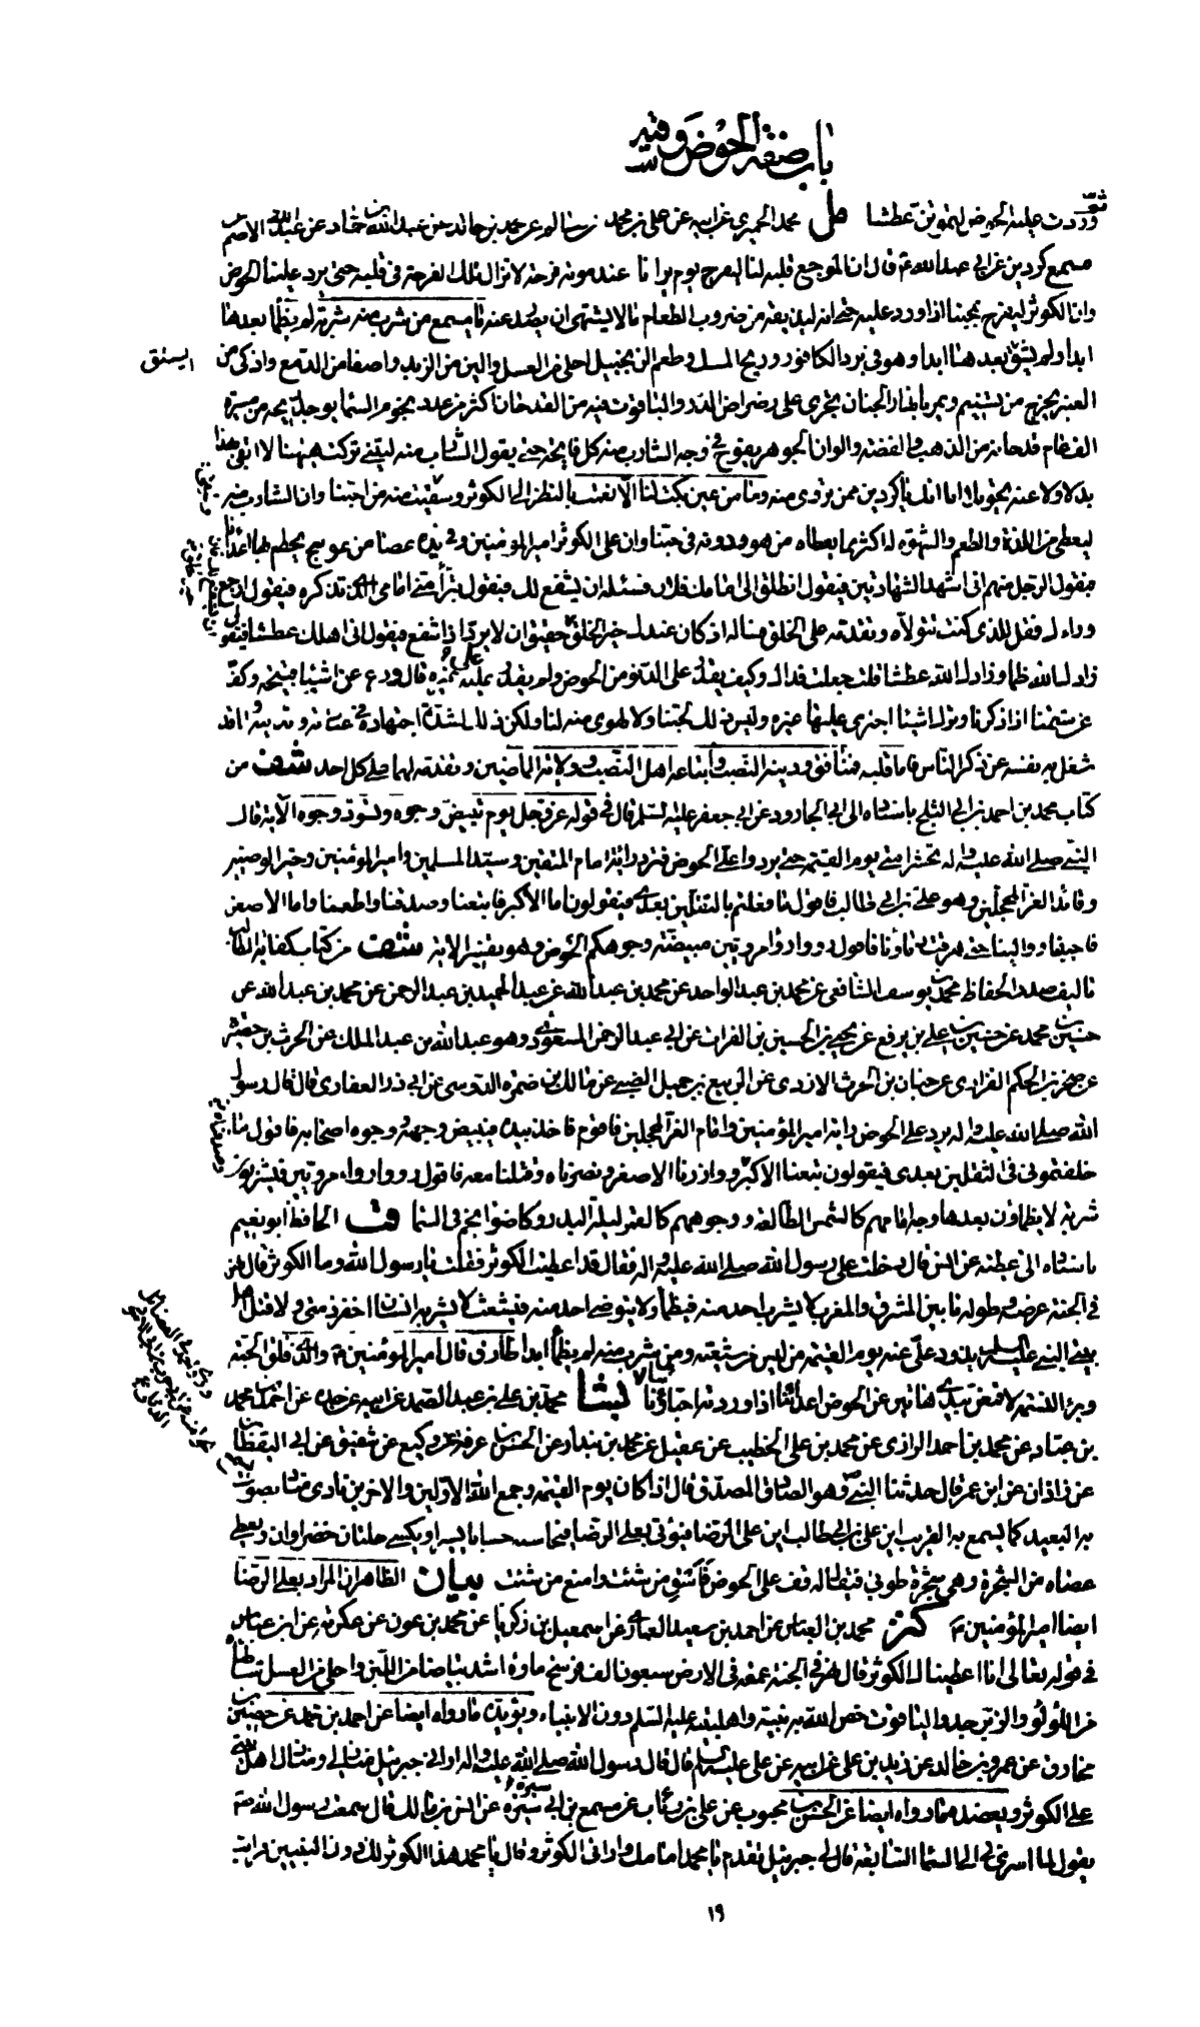 باب صفة الحوض وقسيمه
وردت عليه الحوض ليموتن عطشا مل محمد الحميري عن ابيه عن علي بن محمد بن سالم عن محمد بن خالد عن عبد الله بن حماد عن عبد الله الاصم
مسمع كردين عن ابي عبد الله ع قال ان الموجع قلبه لنا ليفرح يوم يرانا عند موته فرحة لا تزال تلك الفرحة في قلبه حتى يرد علينا الحوض
وان الكوثر ليفرح بمحبنا اذا ورد عليه حتى انه ليذيقه من ضروب الطعام ما لا يشتهي ان يصدر عنه يا مسمع من شرب منه شربة لم يظمأ بعدها
ابدا ولم يشق بعدها ابدا وهو في برد الكافور وريح المسك وطعم الزنجبيل احلى من العسل والين من الزبد واصفا من الدمع واذكى من
العنبر يخرج من تسنيم ويمر بانهار الجنان يجري على رضراض الدر والياقوت فيه من القدحان اكثر من عدد نجوم السماء يوجد ريحه من مسيرة
الف عام قدحانه من الذهب والفضة والوان الجوهر يفوح في وجه الشارب منه كل فايحة حتى يقول الشارب منه ليتني تركت ههنا لا ابغي بهذا
بدلا ولا عنه تحويلا اما انك يا كردين ممن تروى منه وما من عين بكت لنا الا نعمت بالنظر الى الكوثر وسقيت منه من احبنا وان الشارب منه
ليعطى من اللذة والطعم والشهوة له اكثر مما يعطاه من هو دونه في حبنا وان على الكوثر امير المؤمنين وفي يده عصا من عوسج يحطم بها اعداءنا
فيقول الرجل منهم اني اشهد الشهادتين فيقول انطلق الى امامك فلان فسئله ان يشفع لك فيقول تبرأ مني امامي الذي تذكره فيقول ارجع
وراءك فقل للذي كنت تتولاه وتقدمه على الخلق فساله اذ كان عندك خير الخلق ان يشفع لك فان خير الخلق حقيق ان لا يرد اذا شفع فيقول اني اهلك عطشا فيقول
زادك الله ظمأ وزادك الله عطشا قلت جعلت فداك وكيف يقدر على الدنو من الحوض ولم يقدر عليه غيره قال ورع عن اشياء قبيحة وكف
عن شتمنا اذا ذكرنا وترك اشياء اجترى عليها غيره وليس ذلك لحبنا ولا لهوى منه لنا ولكن ذلك لشدة اجتهاده في عبادته وتدينه ولما قد
شغل به نفسه عن ذكر الناس فاما قلبه فمنافق ودينه النصب واتباعه اهل النصب وولاية الماضين وتقدمه لهما على كل احد شف من
كتاب محمد بن احمد بن ابي الثلج باسناده الى ابي الجارود عن ابي جعفر عليه السلم قال في قوله عز وجل يوم تبيض وجوه وتسود وجوه الآية قال
النبي صلى الله عليه واله تحشر امتي يوم القيمة حتى يردوا على الحوض فترد راية امام المتقين وسيد المسلمين وامير المؤمنين وخير الوصيين
وقائد الغر المحجلين وهو علي بن ابي طالب فاقول ما فعلتم بالثقلين بعدي فيقولون اما الاكبر فاتبعنا وصدقنا واطعنا واما الاصغر
فاحببنا ووالينا حتى هرقت دماؤنا فاقول رووا رواء مرويين مبيضة وجوهكم الحوض وهو تفسير الاية شف من كتاب كفاية الطالب
تاليف صدر الحفاظ محمد بن يوسف الشافعي عن محمد بن عبد الواحد عن محمد بن عبد الله عن عبد الحميد بن عبد الرحمن عن محمد بن عبد الله عن
حسين بن محمد عن حسين بن علي بن بزيع عن يحيى بن الحسين بن الفرات عن ابي عبد الرحمن المسعودي وهو عبد الله بن عبد الملك عن الحرث بن حضيرة
عن صخر بن الحكم الفزاري عن حنان بن الحرث الازدي عن الربيع بن جميل الضبي عن مالك بن ضمرة الدوسي عن ابي ذر الغفاري قال قال رسول
الله صلى الله عليه واله يرد علي الحوض راية امير المؤمنين وامام الغر المحجلين فاقوم فاخذ بيده فيبيض وجهه ووجوه اصحابه فاقول ما
خلفتموني في الثقلين بعدي فيقولون تبعنا الاكبر ووازرنا الاصغر ونصرناه وقتلنا معه فاقول رووا رواء مرويين فيشربون
شربة لا يظماون بعدها وجه امامهم كالشمس الطالعة ووجوههم كالقمر ليلة البدر وكاضوا نجم في السما قب الحافظ ابو نعيم
باسناده الى عطية عن انس قال دخلت على رسول الله صلى الله عليه واله فقال قد اعطيت الكوثر فقلت يا رسول الله وما الكوثر قال نهر
في الجنة عرضه وطوله ما بين المشرق والمغرب لا يشرب احد منه فيظمأ ولا يتوضي احد منه فيشعث لا يشربه انسان اخفر ذمتي ولا قتل اهل
بيتي النبي عليه السلم يذود علي عنه يوم القيمة من ليس من شيعته ومن شرب منه لم يظمأ ابدا طارق قال امير المؤمنين ع والذي فلق الحبة
وبرء النسمة لاقمعن بيدي هاتين عن الحوض اعدائنا اذا وردته احباؤنا بشا محمد بن علي بن عبد الصمد عن ابيه عن جده عن احمد بن محمد
بن عباد عن محمد بن احمد الرازي عن محمد بن علي الخطيب عن عقيل عن محمد بن بندار عن الحسن بن عرفة عن وكيع عن شقيق عن ابي اليقظان
عن زاذان عن ابن عمر قال حدثنا النبي ص وهو الصادق المصدق قال اذا كان يوم القيمة وجمع الله الاولين والاخرين نادى مناد بصوت
به البعيد كما يسمع به القريب اين علي بن ابي طالب اين علي الرضا فيؤتى بعلي الرضا فيحاسبه حسابا يسيرا ويكسى حلتان خضراوان ويعطى
عصاه من الشجرة وهي شجرة طوبى فيقال له قف على الحوض فاسق من شئت وامنع من شئت بيان الظاهر ان المراد بعلي الرضا
ايضا امير المؤمنين ع كنز محمد بن العباس عن احمد بن سعيد العماري عن اسمعيل بن زكريا عن محمد بن عون عن عكرمة عن ابن عباس
في قوله تعالى انا اعطيناك الكوثر قال نهر في الجنة عمقه في الارض سبعون الف فرسخ ماؤه اشد بياضا من اللبن واحلى من العسل شاطئاه
من اللؤلؤ والزبرجد والياقوت خص الله به نبيه واهل بيته عليه السلم دون الانبياء ويؤيده ما رواه ايضا عن احمد بن محمد عن حصين
مخارق عن عمرو بن خالد عن زيد بن علي عن ابيه عن علي عليه السلم قال قال رسول الله صلى الله عليه واله اراني جبرئيل منازلي ومنازل اهل بيتي
على الكوثر ويعضده ما رواه ايضا عن الحسن بن محبوب عن علي بن رئاب عن مسمع بن ابي سيره عن انس بن مالك قال سمعت رسول الله ص
يقول لما اسري بي الى السما السابعة قال لي جبرئيل تقدم يا محمد امامك واراني الكوثر وقال يا محمد هذا الكوثر لك دون النبيين فرايت
١٩